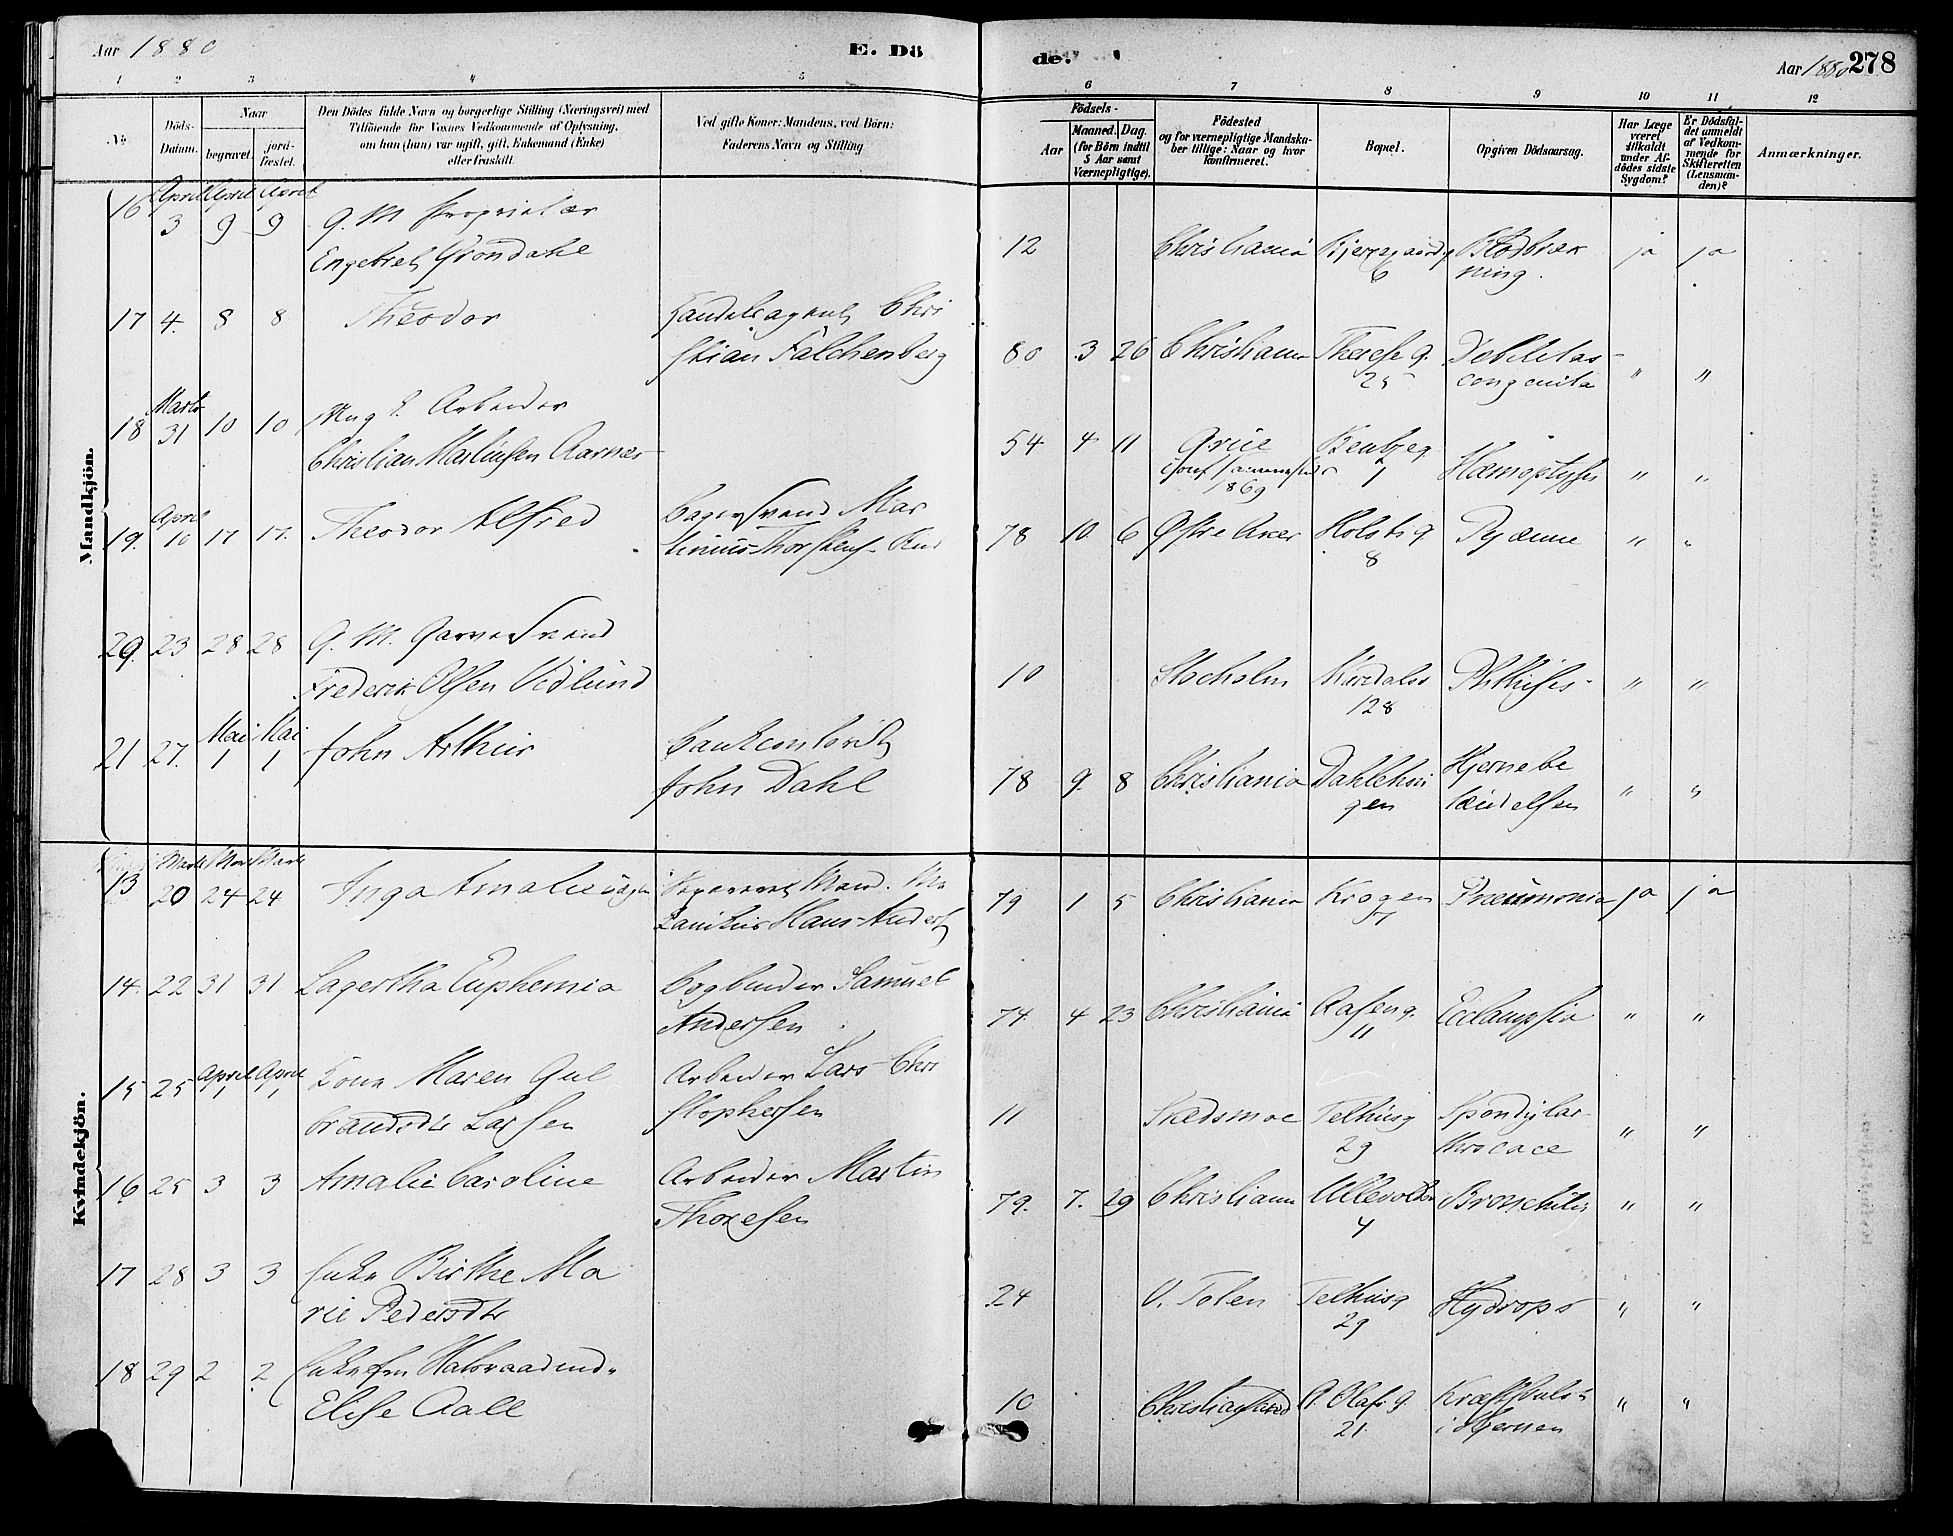 Aar 1880
E. Dö
de.
Aar 1880 278
1 2 3 4 5 6 7 8 9 10 11 12
No.
Döds-Datum.
Naar
begravet.
jord-fæstet.
Den Dödes fulde Navn og borgerlige Stilling (Næringsvei) med
Tilföiende for Voxnes Vedkommende af Oplysning,
om han (hun) var ugift, gift, Enkemand (Enke)
eller fraskilt.
Ved gifte Koner: Mandens, ved Börn:
Faderens Navn og Stilling
Födsels-
Aar
Maaned. Dag.
(for Börn indtil
5 Aar samt
Værnepligtige).
Födested
og for værnepligtige Mandska-
ber tillige: Naar og hvor
konfirmeret.
Bopæl.
Opgiven Dödsaarsag.
Har Læge
været
tilkaldt
under Af-
dödes sidste
Sygdom?
Er Dödsfal-
det anmeldt
af Vedkom-
mende for
Skifteretten
(Lensman-
den)?
Anmærkninger.
Mandkjön.
April April April
16 3 9 9 G. M. Proprietær
Engebret Gröndahl
12 Christiania Bjerregaardsg 6 Blodbræk
ning. ja ja
17 4. 8 8 Theodor Handelsagent Chri
stian Falchenberg
80 3 26 Christiania Therese g. 25 Debilitas
congenita " "
Marts
18 31 10 10 Ung k. Arbeider
Christian Martinsen Aarnæs
54 4 11 Grue
conf sammesteds
1869
1 Hæmoptysis " "
April
19. 10 17 17. Theodor Alfred Bagersvend Mar
tinius Thorstens. Rud
78 10. 6 Østre Aker Holstsg 8 Pyæmie " "
20. 23 28 28 G. M. Garversvend
Frederik Olsen Vidlund
10 Stocholm Maridalsv 128 Phthisis " "
Mai Mai
21 27. 1 1 John Arthur Bankcontorist
John Dahl
78 9. 8 Christiania Dahlehau
gen Hjernebe
tændelsen " "
Kvindekjön.
Marts Marts Marts
13 20 24 24 Inga Amalie uægte
Hans Anders
79 1 5 Christiania Krogen 7 Pneumonia ja ja
14. 22 31 31 Lagertha Euphemia Bogbinder Samuel
Andersen
74. 4 23 Christiania Aaseng. 11 Eclampsia " "
April April
15 25 1 1 Kone Maren Gul
brandsdtr Larsen
Arbeider Lars Chri
stophersen
11 Skedsmoe Telthusg 29 Spondylar
throcace " "
16 25 3 3 Amalie Caroline Arbeider Martin
Thoresen
79. 7. 29 Christiania Ullevoldsv 4 Bronchitis " "
17 28 3 3 Enke Birthe Ma
rie Pedersdtr
24 V. Toten Telthusg 29 Hydrops " "
18 29 2 2 Enkefru
Elise Aall
10 Christiansand St Olafs g. 21 Kræftsvulst
i Hjernen " "